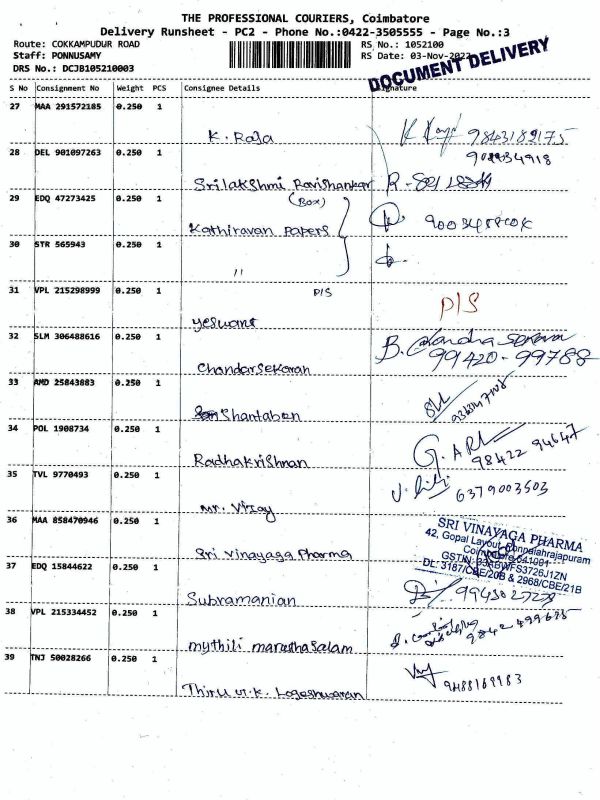 THE PROFESSIONAL COURIERS, Coimbatore
Delivery Runsheet - PC2 - Phone No.:0422-3505555 - Page No.:3
Route: COKKAMPUDUR ROAD RS No.: 1052100
Staff: PONNUSAMY RS Date: 03-Nov-2022
DRS No.: DCJB105210003
DOCUMENT DELIVERY
S No Consignment No Weight PCS Consignee Details Signature
27 MAA 291572185 0.250 1
K. Raja 9843182175
28 DEL 901097263 0.250 1
Srilakshmi Ravishankar
29 EDQ 47273425 0.250 1
(Box)
Kathiravan Papers
30 STR 565943 0.250 1
"
31 VPL 215298999 0.250 1
P/S P/S
yeswant
32 SLM 306488616 0.250 1
Chandarsekaran 99420-99788
33 AMD 25843883 0.250 1
Shantaben
34 POL 1908734 0.250 1
Radhakrishnan 98422 94647
35 TVL 9770493 0.250 1
mr. Vijay 6379003503
36 MAA 858470946 0.250 1
Sri Vinayaga Pharma
SRI VINAYAGA PHARMA
42, Gopal Layout, Ponnaiahrajapuram
Coimbatore 641001
GSTIN: 33ABWFS3726J1ZN
DL: 3187/CBE/20B & 2968/CBE/21B
37 EDQ 15844622 0.250 1
Subramanian
38 VPL 215334452 0.250 1
mythili maruthasalam
39 TNJ 50028266 0.250 1
Thiru M.K. Logeshwaran 9488169983